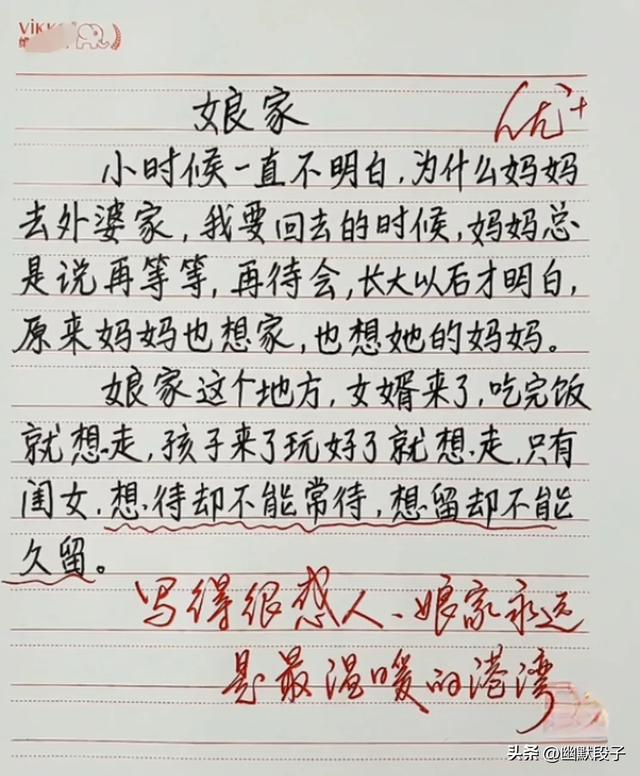 娘家
优+
小时候一直不明白，为什么妈妈
去外婆家，我要回去的时候，妈妈总
是说再等等，再待会，长大以后才明白，
原来妈妈也想家，也想她的妈妈。
娘家这个地方，女婿来了，吃完饭
就想走，孩子来了玩好了就想走，只有
闺女，想待却不能常待，想留却不能
久留。
写得很感人、娘家永远
是最温暖的港湾
头条 @幽默段子